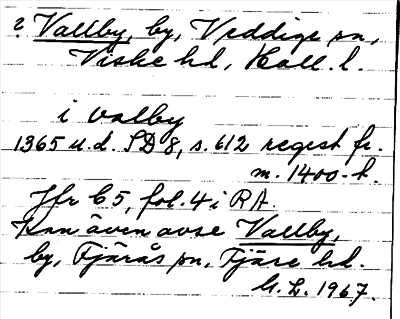 ? Vallby, by, Veddige sn,
Viske hd, Hall. l.
i valby
1365 u.d. SD 8, s. 612 regest fr.
m. 1400-t.
Jfr C 5, fol. 4 i RA.
Kan även avse Vallby,
by, Fjärås sn, Fjäre hd.
G.L. 1967.